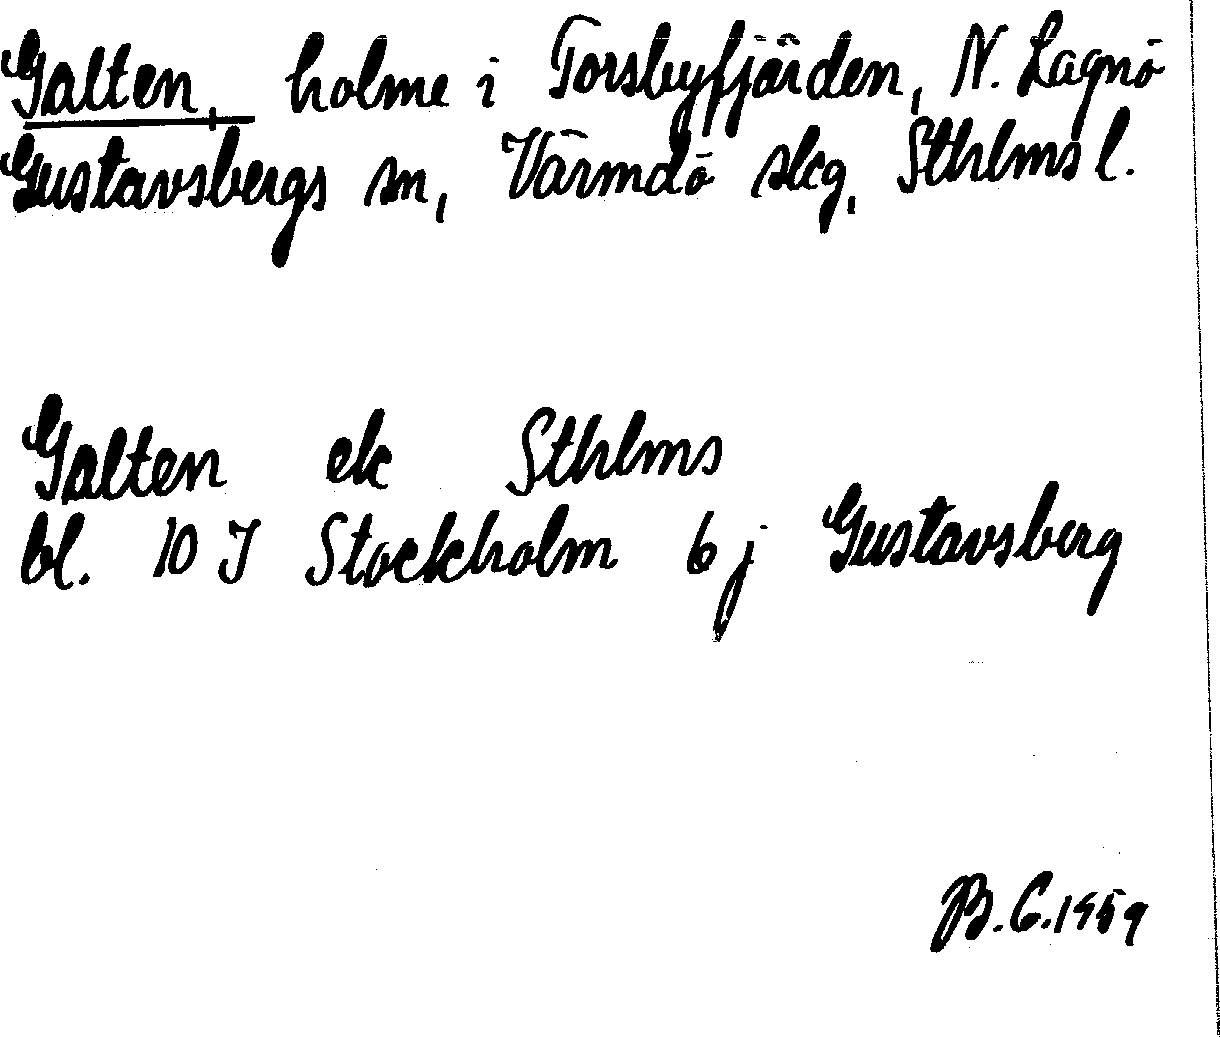 Galten, holme i Torsbyfjärden, N. Lagnö
Gustavsbergs sn, Värmdö skg, Sthlms l.
Galten ek Sthlms
bl. 10 I Stockholm 6 j Gustavsberg
B.G. 1959